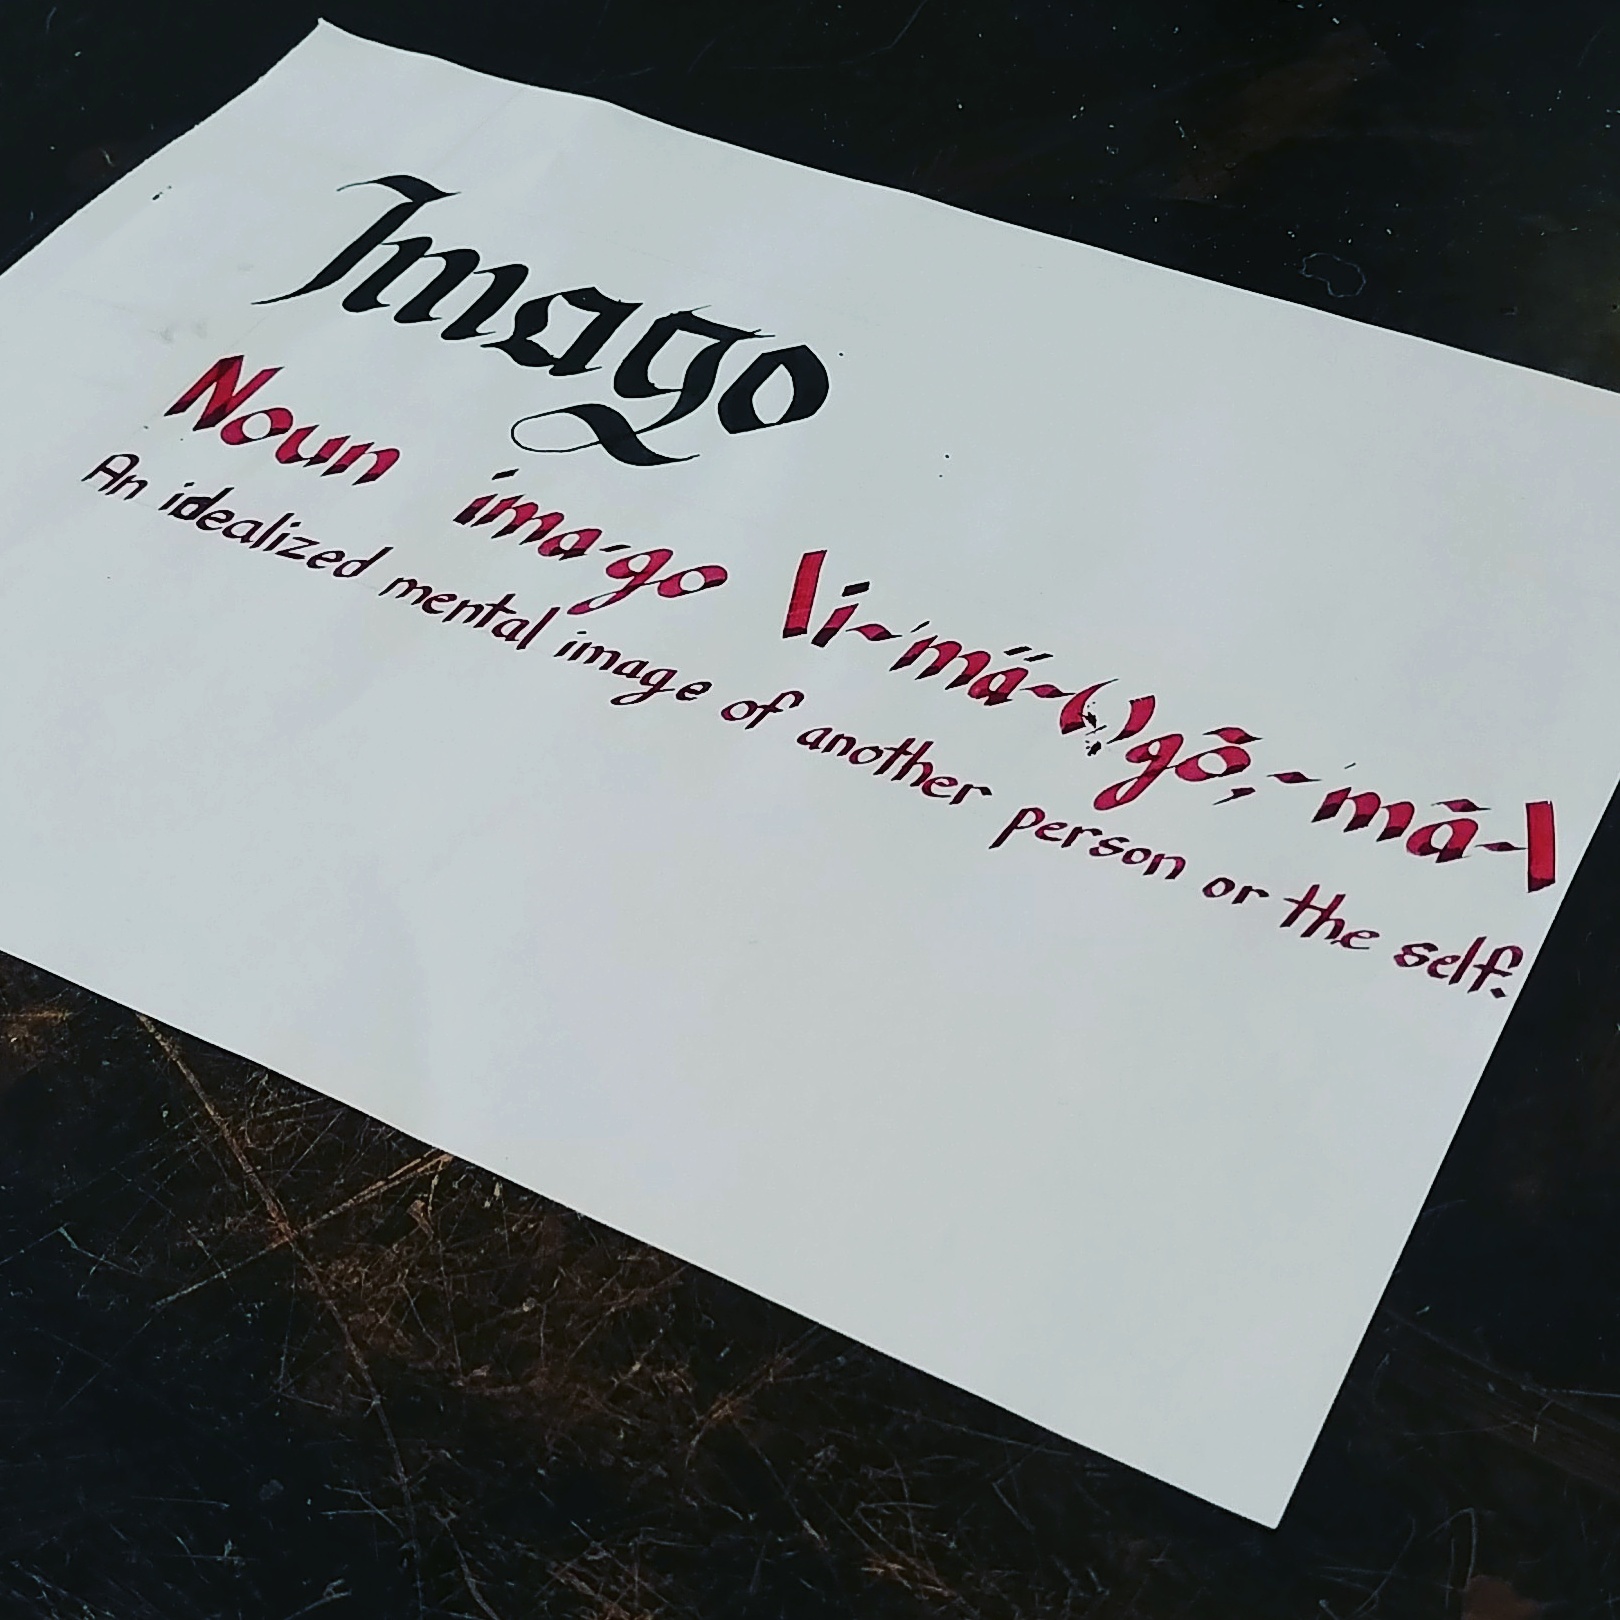 Imago
Noun ima·go \i-ˈmä-()gō, -ˈmā-\
An idealized mental image of another person or the self.